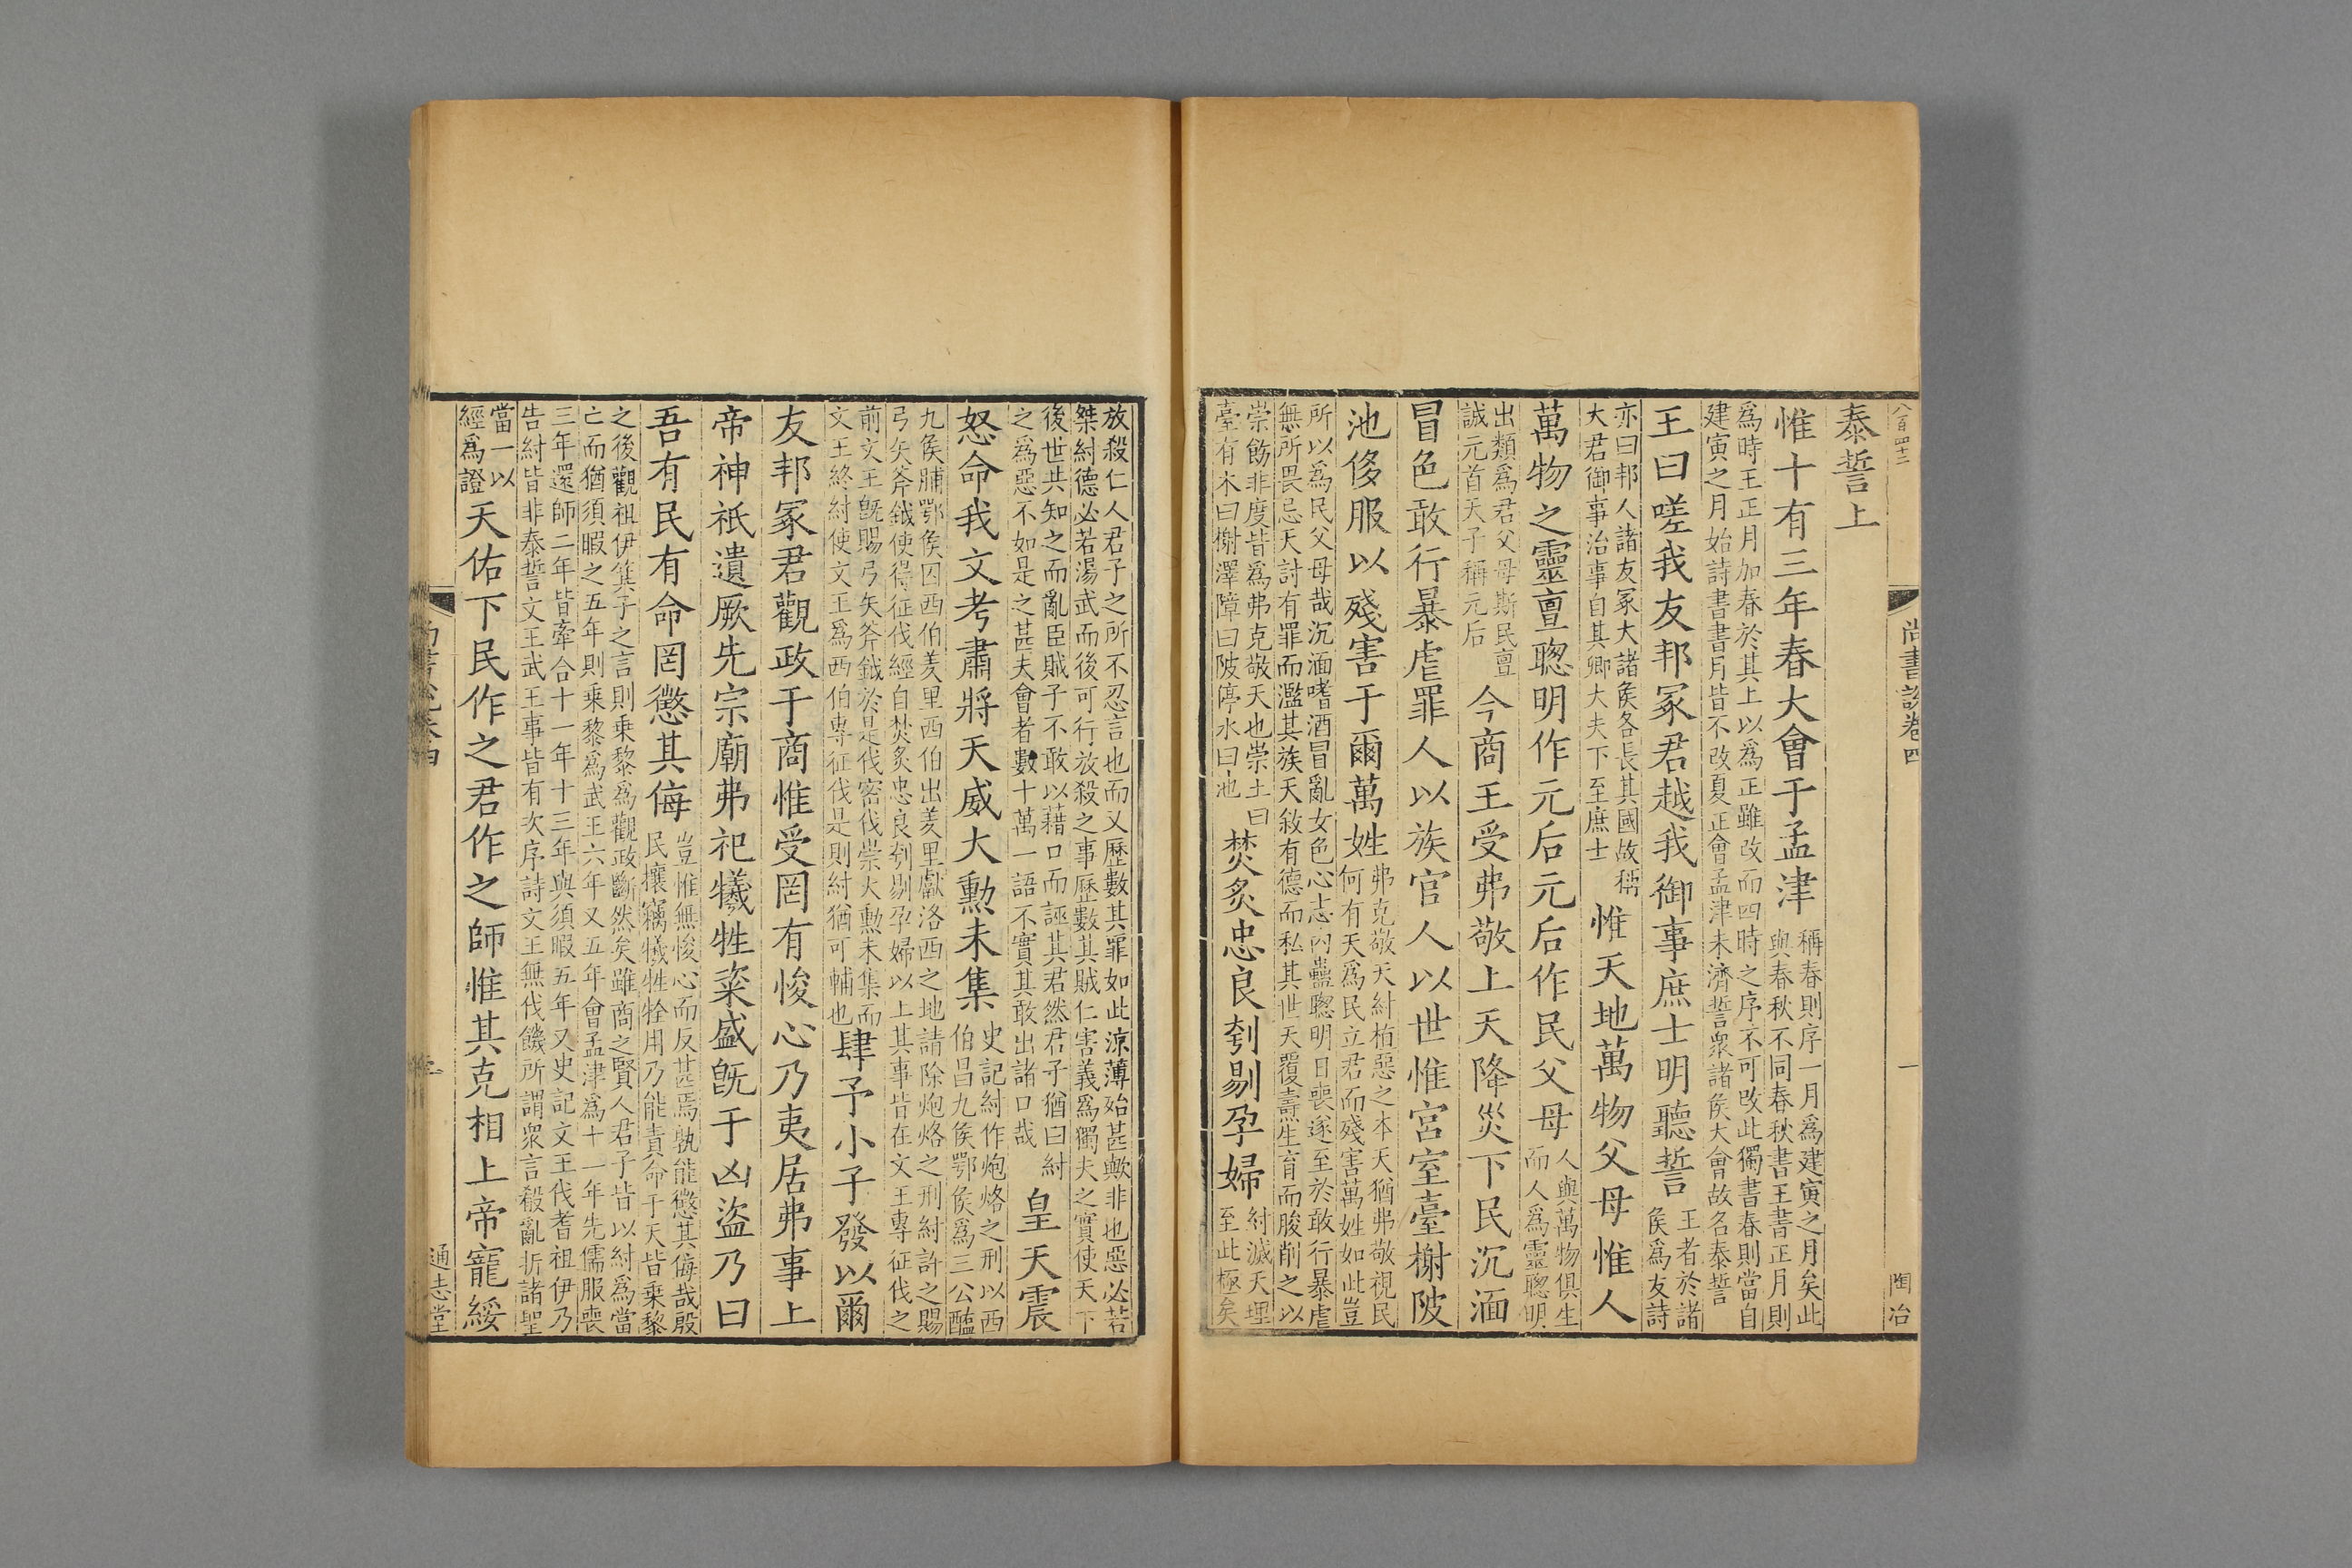 八百四十二
尚書說卷四
一
陶冶
泰誓上
惟十有三年春大會于孟津
稱春則序一月爲建寅之月矣此
與春秋不同春秋書王書正月則
爲時王正月加春於其上以爲正雖改而四時之序不可改此獨書春則當自
建寅之月始詩書書月皆不改夏正會孟津未濟誓衆諸侯大會故名泰誓
王曰嗟我友邦冢君越我御事庶士明聽誓
王者於諸
侯爲友詩
亦曰邦人諸友冢大諸侯各長其國故稱
大君御事治事自其卿大夫下至庶士
惟天地萬物父母惟人
萬物之靈亶聰明作元后元后作民父母
人與萬物俱生
而人爲靈聰明
出類爲君父母斯民亶
誠元首天子稱元后
今商王受弗敬上天降災下民沉湎
冒色敢行暴虐罪人以族官人以世惟宮室臺榭陂
池侈服以殘害于爾萬姓
弗克敬天紂稔惡之本天猶弗敬視民
何有天爲民立君而殘害萬姓如此豈
所以爲民父母哉沉湎嗜酒冒亂女色心志内蠱聰明日喪遂至於敢行暴虐
無所畏忌天討有罪而濫其族天敘有德而私其世天覆燾生育而朘削之以
崇飭非度皆爲弗克敬天也崇土曰
臺有木曰榭澤障曰陂停水曰池
焚炙忠良刳剔孕婦
紂滅天理
至此極矣
放殺仁人君子之所不忍言也而又歷數其罪如此涼薄殆甚歟非也惡必若
桀紂德必若湯武而後可行放殺之事歷數其賊仁害義爲獨夫之實使天下
後世共知之而亂臣賊子不敢以藉口而誣其君然君子猶曰紂
之爲惡不如是之甚夫會者數十萬一語不實其敢出諸口哉
皇天震
怒命我文考肅將天威大勳未集
史記紂作炮烙之刑以西
伯昌九侯鄂侯爲三公醢
九侯脯鄂侯囚西伯羑里西伯出羑里獻洛西之地請除炮烙之刑紂許之賜
弓矢斧鉞使得征伐經自焚炙忠良刳剔孕婦以上其事皆在文王專征伐之
前文王旣賜弓矢斧鉞於是伐密伐崇大勲未集而
文王終紂使文王爲西伯專征伐是則紂猶可輔也
肆予小子發以爾
友邦冢君觀政于商惟受罔有悛心乃夷居弗事上
帝神祇遺厥先宗廟弗祀犧牲粢盛旣于凶盜乃曰
吾有民有命罔懲其侮
豈惟無悛心而反甚焉孰能懲其侮哉殷
民攘竊犧牲牷用乃能責命于天皆乘黎
之後觀祖伊箕子之言則乗黎爲觀政斷然矣雖商之賢人君子皆以紂爲當
亡而猶須暇之五年則乗黎爲武王六年又五年會孟津爲十一年先儒服喪
三年還師二年皆牽合十一年十三年與須暇五年又史記文王伐耆祖伊乃
告紂皆非泰誓文王武王事皆有次序詩文王無伐饑所謂衆言殽亂折諸聖
當一以
經爲證
天佑下民作之君作之師惟其克相上帝寵綏
通志堂